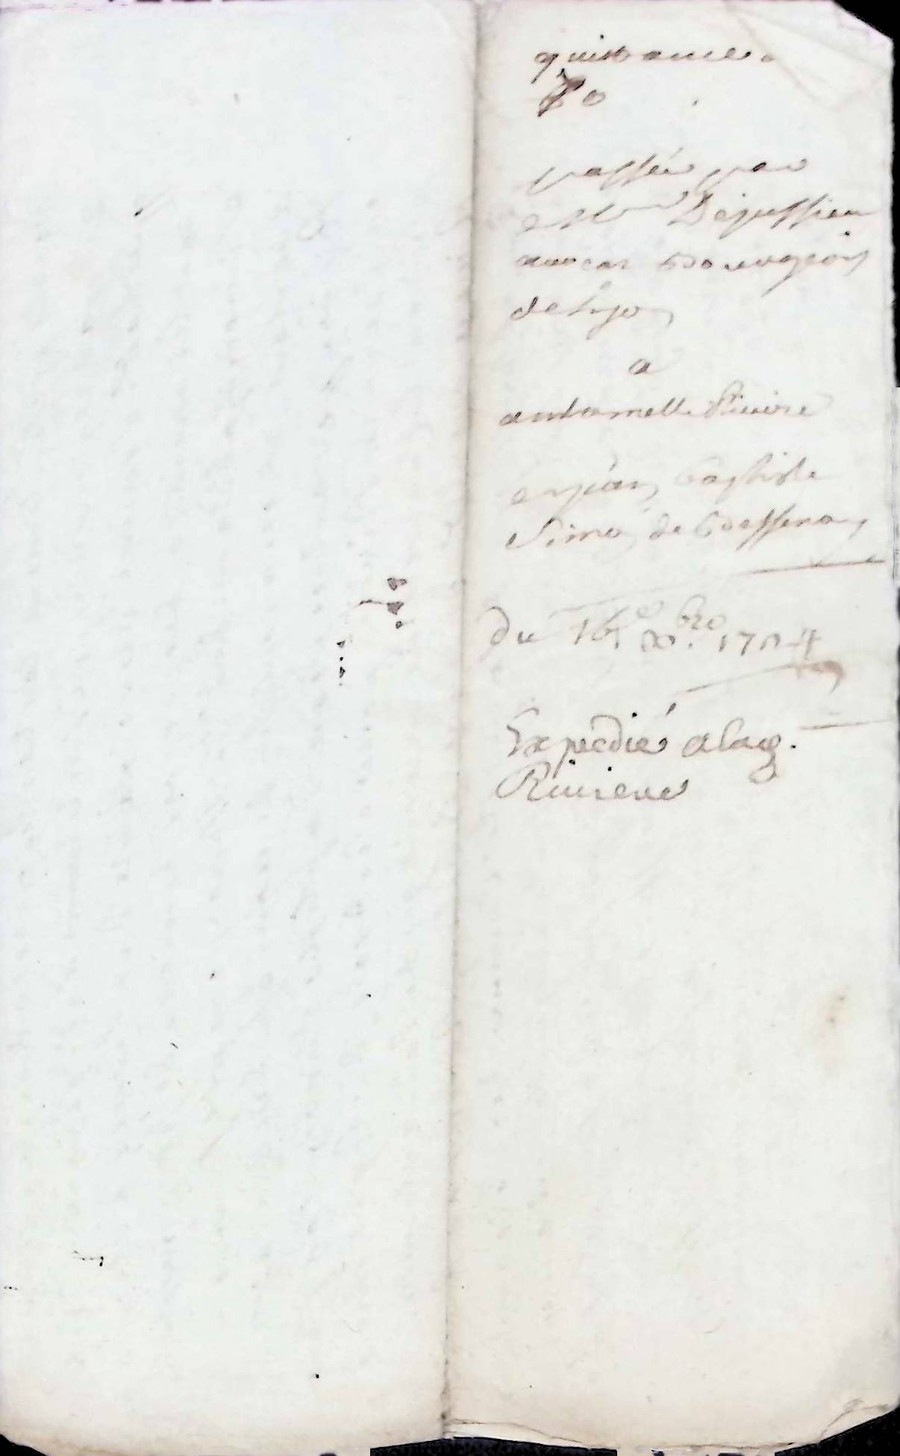 quittance
passée par
Mr Dejussieu
avocat bourgeois
de Lyon
a
anthoinette Riviere
et jean baptiste
Simon de bessenay
du 16e 8bre 1704
Expedié alad.
Riviere